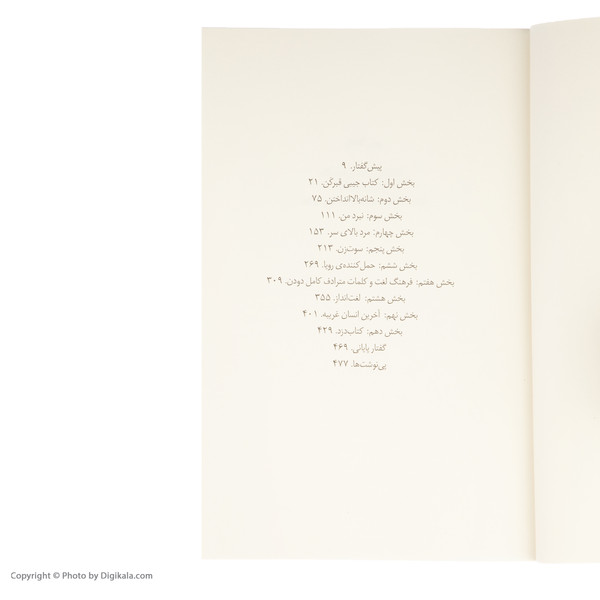 پیش‌گفتار. ۹
بخش اول: کتاب جیبی قبرکن. ۲۱
بخش دوم: شانه‌بالاانداختن. ۷۵
بخش سوم: نبرد من. ۱۱۱
بخش چهارم: مرد بالای سر. ۱۵۳
بخش پنجم: سوت‌زن. ۲۱۳
بخش ششم: حمل‌کننده‌ی رویا. ۲۶۹
بخش هفتم: فرهنگ لغت و کلمات مترادف کامل دودن. ۳۰۹
بخش هشتم: لغت‌انداز. ۳۵۵
بخش نهم: آخرین انسان غریبه. ۴۰۱
بخش دهم: کتاب‌دزد. ۴۲۹
گفتار پایانی. ۴۶۹
پی‌نوشت‌ها. ۴۷۷
Copyright © Photo by Digikala.com